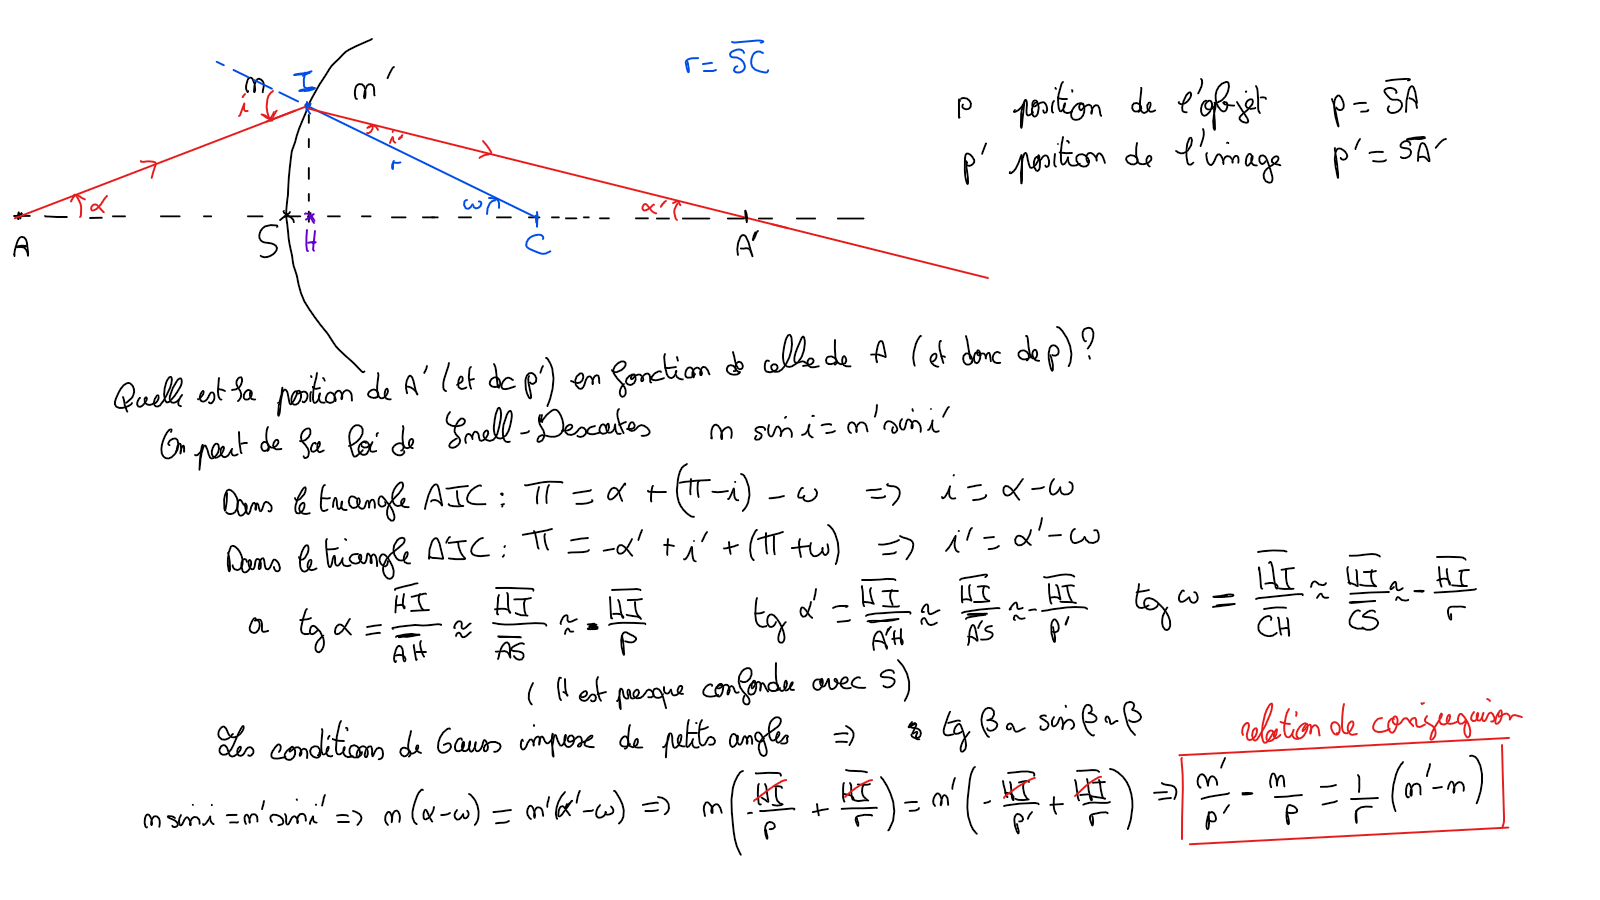 r = S̅C̅
n I n'
i
i'
r
α ω α'
A S H C A'
p position de l'objet p = S̅A̅
p' position de l'image p' = S̅A̅'
Quelle est la position de A' (et dc p') en fonction de celle de A (et donc de p) ?
On part de la loi de Snell-Descartes n sin i = n' sin i'
Dans le triangle AIC : π = α + (π-i) - ω => i = α - ω
Dans le triangle A'IC : π = -α' + i' + (π+ω) => i' = α' - ω
a tg α = H̅I̅/A̅H̅ ≈ H̅I̅/A̅S̅ ≈ - H̅I̅/p tg α' = H̅I̅/A̅'H̅ ≈ H̅I̅/A̅'S̅ ≈ - H̅I̅/p' tg ω = H̅I̅/C̅H̅ ≈ H̅I̅/C̅S̅ ≈ - H̅I̅/r
( H est presque confondu avec S )
Les conditions de Gauss impose de petits angles => tg β ~ sin β ~ β
relation de conjugaison
n sin i = n' sin i' => n(α-ω) = n'(α'-ω) => n(- H̅I̅/p + H̅I̅/r) = n'(- H̅I̅/p' + H̅I̅/r) => n'/p' - n/p = 1/r (n'-n)